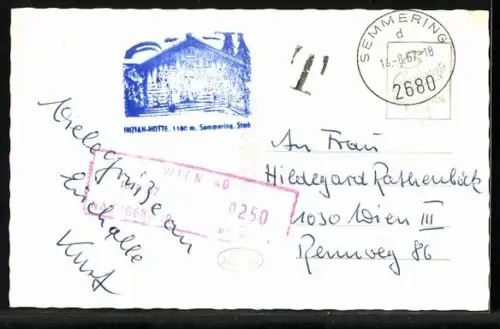 SEMMERING
d
2680
T
ENZIAN-HÜTTE, 1180 m, Semmering, Stmk
WIEN 40
0250
Viele Grüße an
Euch alle
Kurt
An Frau
Hildegard Rathenböck
1030 Wien III
Rennweg 86